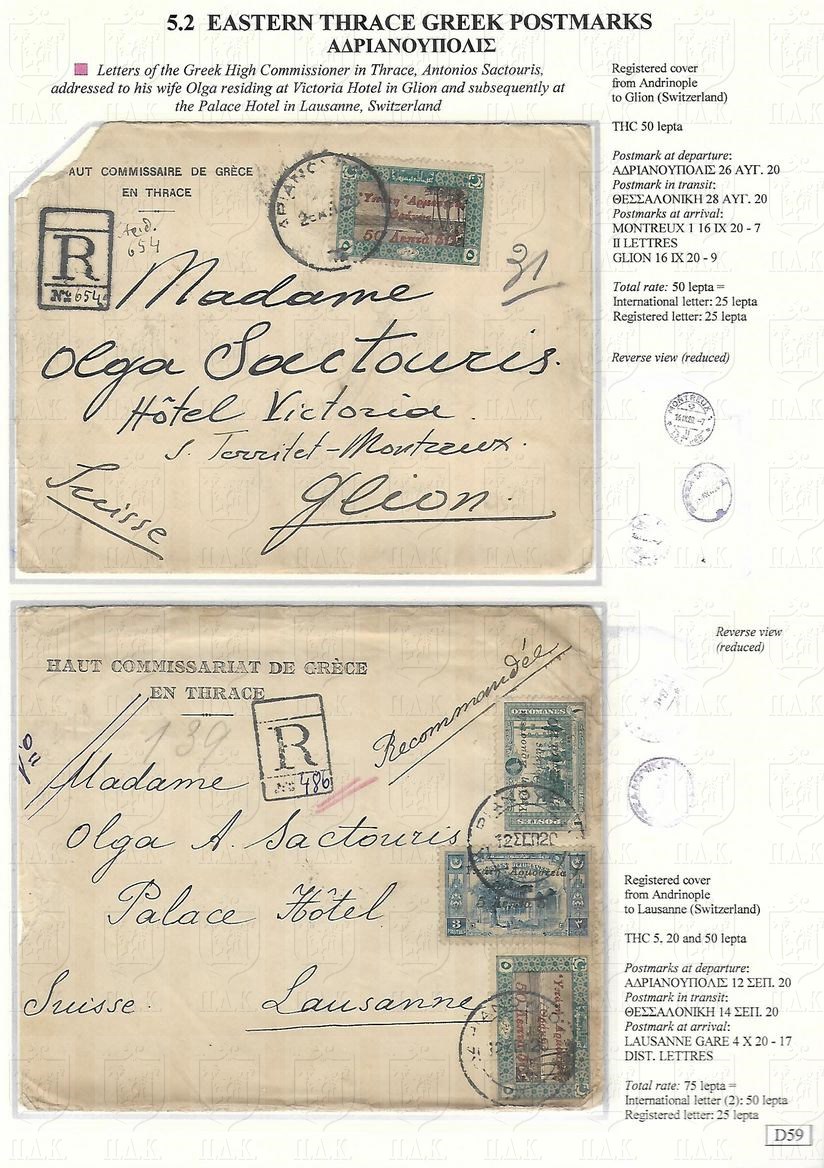 5.2 EASTERN THRACE GREEK POSTMARKS
ΑΔΡΙΑΝΟΥΠΟΛΙΣ
Letters of the Greek High Commissioner in Thrace, Antonios Sactouris,
addressed to his wife Olga residing at Victoria Hotel in Glion and subsequently at
the Palace Hotel in Lausanne, Switzerland
Registered cover
from Andrinople
to Glion (Switzerland)
THC 50 lepta
Postmark at departure:
ΑΔΡΙΑΝΟΥΠΟΛΙΣ 26 ΑΥΓ. 20
Postmark in transit:
ΘΕΣΣΑΛΟΝΙΚΗ 28 ΑΥΓ. 20
Postmarks at arrival:
MONTREUX 1 16 IX 20 - 7
II LETTRES
GLION 16 IX 20 - 9
Total rate: 50 lepta =
International letter: 25 lepta
Registered letter: 25 lepta
Reverse view (reduced)
MONTREUX
AUT COMMISSAIRE DE GRÈCE
EN THRACE
R
No 654
654
31
Madame
Olga Sactouris.
Hôtel Victoria.
s. Territet-Montreux.
Glion.
Suisse
Reverse view
(reduced)
HAUT COMMISSARIAT DE GRÈCE
EN THRACE
Recommandée
139
R
No 486
Madame
Olga A. Sactouris
Palace Hôtel
Suisse. Lausanne
OTTOMANES
POSTES
12 ΣΕΠ 20
3 PIASTRES
Registered cover
from Andrinople
to Lausanne (Switzerland)
THC 5, 20 and 50 lepta
Postmarks at departure:
ΑΔΡΙΑΝΟΥΠΟΛΙΣ 12 ΣΕΠ. 20
Postmark in transit:
ΘΕΣΣΑΛΟΝΙΚΗ 14 ΣΕΠ. 20
Postmark at arrival:
LAUSANNE GARE 4 X 20 - 17
DIST. LETTRES
Total rate: 75 lepta =
International letter (2): 50 lepta
Registered letter: 25 lepta
D59